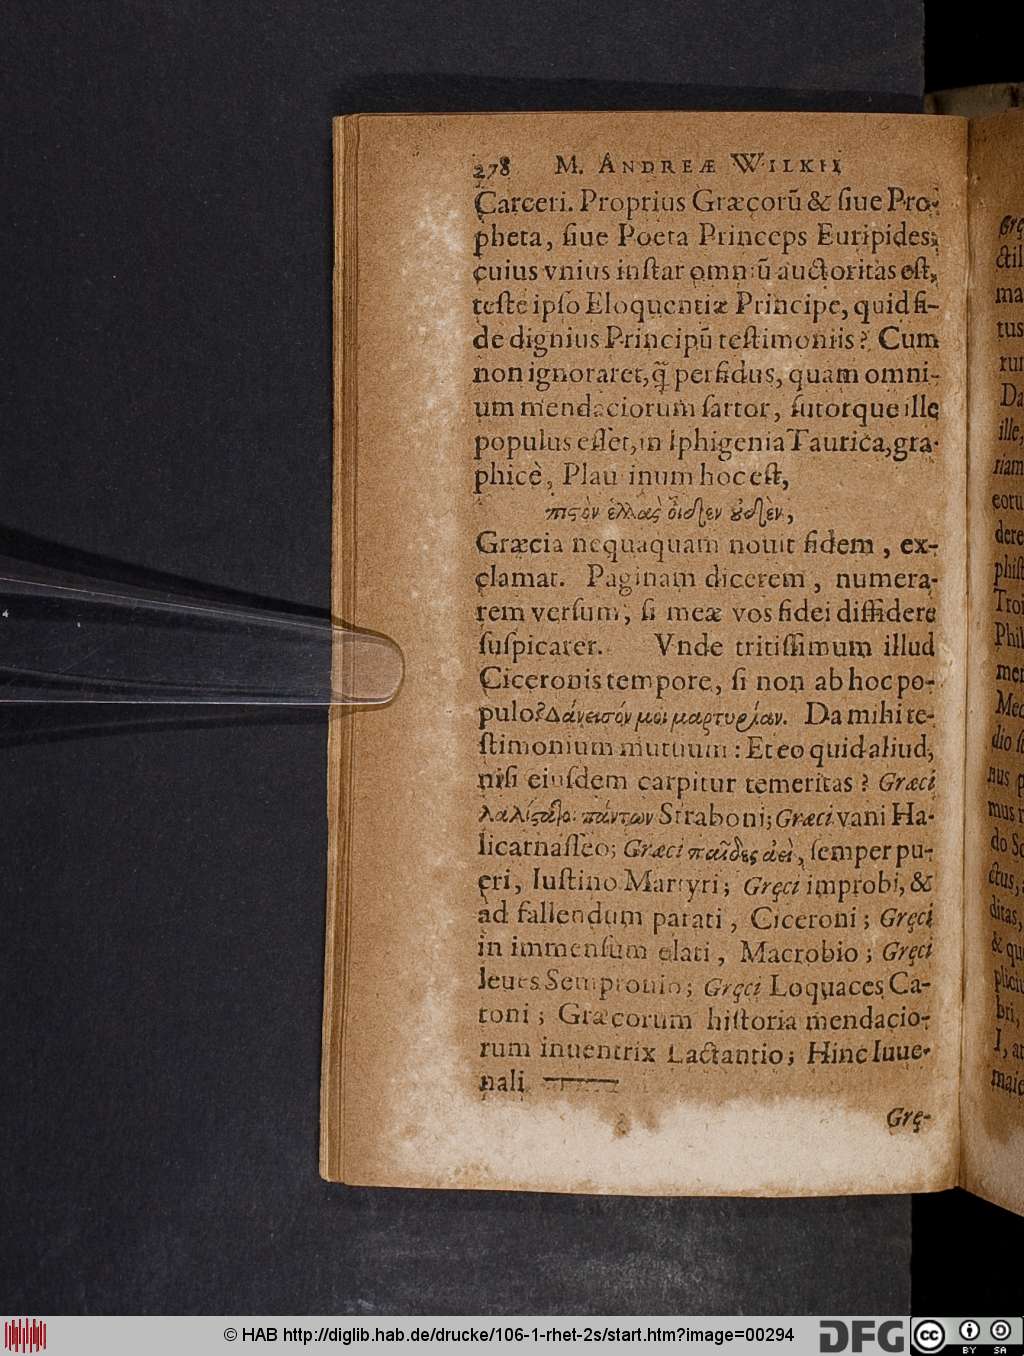 278 M. ANDREÆ WILKII
Carceri. Proprius Græcorũ & ſiue Pro-
pheta, ſiue Poeta Princeps Euripides,
cuius vnius inſtar omniũ auctoritas eſt,
teſte ipſo Eloquentiæ Principe, quid fi-
de dignius Principũ teſtimoniis? Cum
non ignoraret, q̃ perfidus, quam omni-
um mendaciorum ſartor, ſutorque ille
populus eſſet, in Iphigenia Taurica, gra-
phicè, Plautinum hoc eſt,
πιςὸν ἑλλὰς οἶδεν ȣ̓δὲν,
Græcia nequaquam nouit fidem, ex-
clamat. Paginam dicerem, numera-
rem verſum, ſi meæ vos fidei diffidere
ſuſpicarer. Vnde tritiſſimum illud
Ciceronis tempore, ſi non ab hoc po-
pulo? Δάνεισόν μοι μαρτυρίαν. Da mihi te-
ſtimonium mutuum: Et eo quid aliud,
niſi eiuſdem carpitur temeritas? Græci
πάντων Straboni; Græci vani Ha-
licarnaſſeo; Græci παῖδες ἀεὶ, ſemper pu-
eri, Iuſtino Martyri; Gręci improbi, &
ad fallendum parati, Ciceroni; Gręci
in immenſum elati, Macrobio; Gręci
leues Sempronio; Gręci Loquaces Ca-
toni; Græcorum hiſtoria mendacio-
rum inuentrix Lactantio; Hinc Iuue-
nali
Grę-
Grę
ctil
ma
tus
rur
Da
ille,
riam
eoru
dere
phiſt
Troi
Phil
mer
Med
dio ſ
nus p
mus r
do So
ctus,
ditas,
& qu
pliciu
bri,
I, a
maio
© HAB http://diglib.hab.de/drucke/106-1-rhet-2s/start.htm?image=00294
DFG
cc BY SA